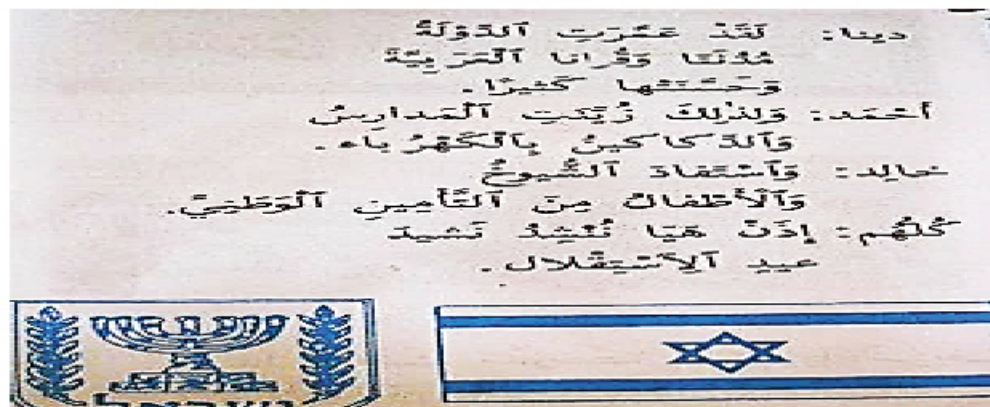 دينا: لَقَدْ عَمَّرَتِ ٱلدَّوْلَةُ
مُدُنَنا وَقُرانا ٱلْعَرَبِيَّةَ
وَحَسَّنَتْها كَثيرًا.
أَحْمَد: وَلِذٰلِكَ زُيِّنَتِ ٱلْمَدارِسُ
وَٱلدَّكاكينُ بِٱلْكَهْرُباء.
خالِد: وَٱسْتَفادَ ٱلشُّيوخُ
وَٱلْأَطْفالُ مِنَ ٱلتَّأْمينِ ٱلْوَطَنِيِّ.
كُلُّهُم: إِذَنْ هَيّا نُنْشِدُ نَشيدَ
عيدِ ٱلِٱسْتِقْلال.
ישראל